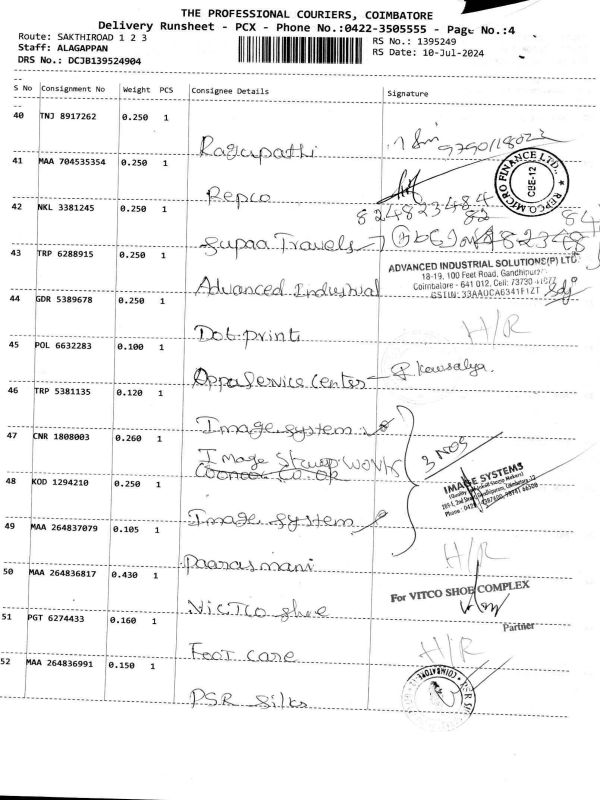 THE PROFESSIONAL COURIERS, COIMBATORE
Delivery Runsheet - PCX - Phone No.:0422-3505555 - Page No.:4
Route: SAKTHIROAD 1 2 3
RS No.: 1395249
Staff: ALAGAPPAN
RS Date: 10-Jul-2024
DRS No.: DCJB139524904
S No Consignment No Weight PCS Consignee Details Signature
40 TNJ 8917262 0.250 1
Ragupathi
41 MAA 704535354 0.250 1
Repco
REPCO MICRO FINANCE LTD.,
CBE-12
42 NKL 3381245 0.250 1
824823484
Supaa Travels
43 TRP 6288915 0.250 1
Advanced Industrial
ADVANCED INDUSTRIAL SOLUTIONS(P) LTD
18-19, 100 Feet Road, Gandhipuram
Coimbatore - 641 012, Cell: 73730
GSTIN: 33AAOCA6341F1ZT
44 GDR 5389678 0.250 1
Dot print
H/R
45 POL 6632283 0.100 1
Oppo Service center
46 TRP 5381135 0.120 1
Image system
47 CNR 1808003 0.260 1
Image Stamp works
3 NOS
48 KOD 1294210 0.250 1
Image system
IMAGE SYSTEMS
49 MAA 264837079 0.105 1
Paarasmani
H/R
50 MAA 264836817 0.430 1
VICTCO shoe
For VITCO SHOE COMPLEX
Partner
51 PGT 6274433 0.160 1
Foot care
H/R
52 MAA 264836991 0.150 1
PSR Silks